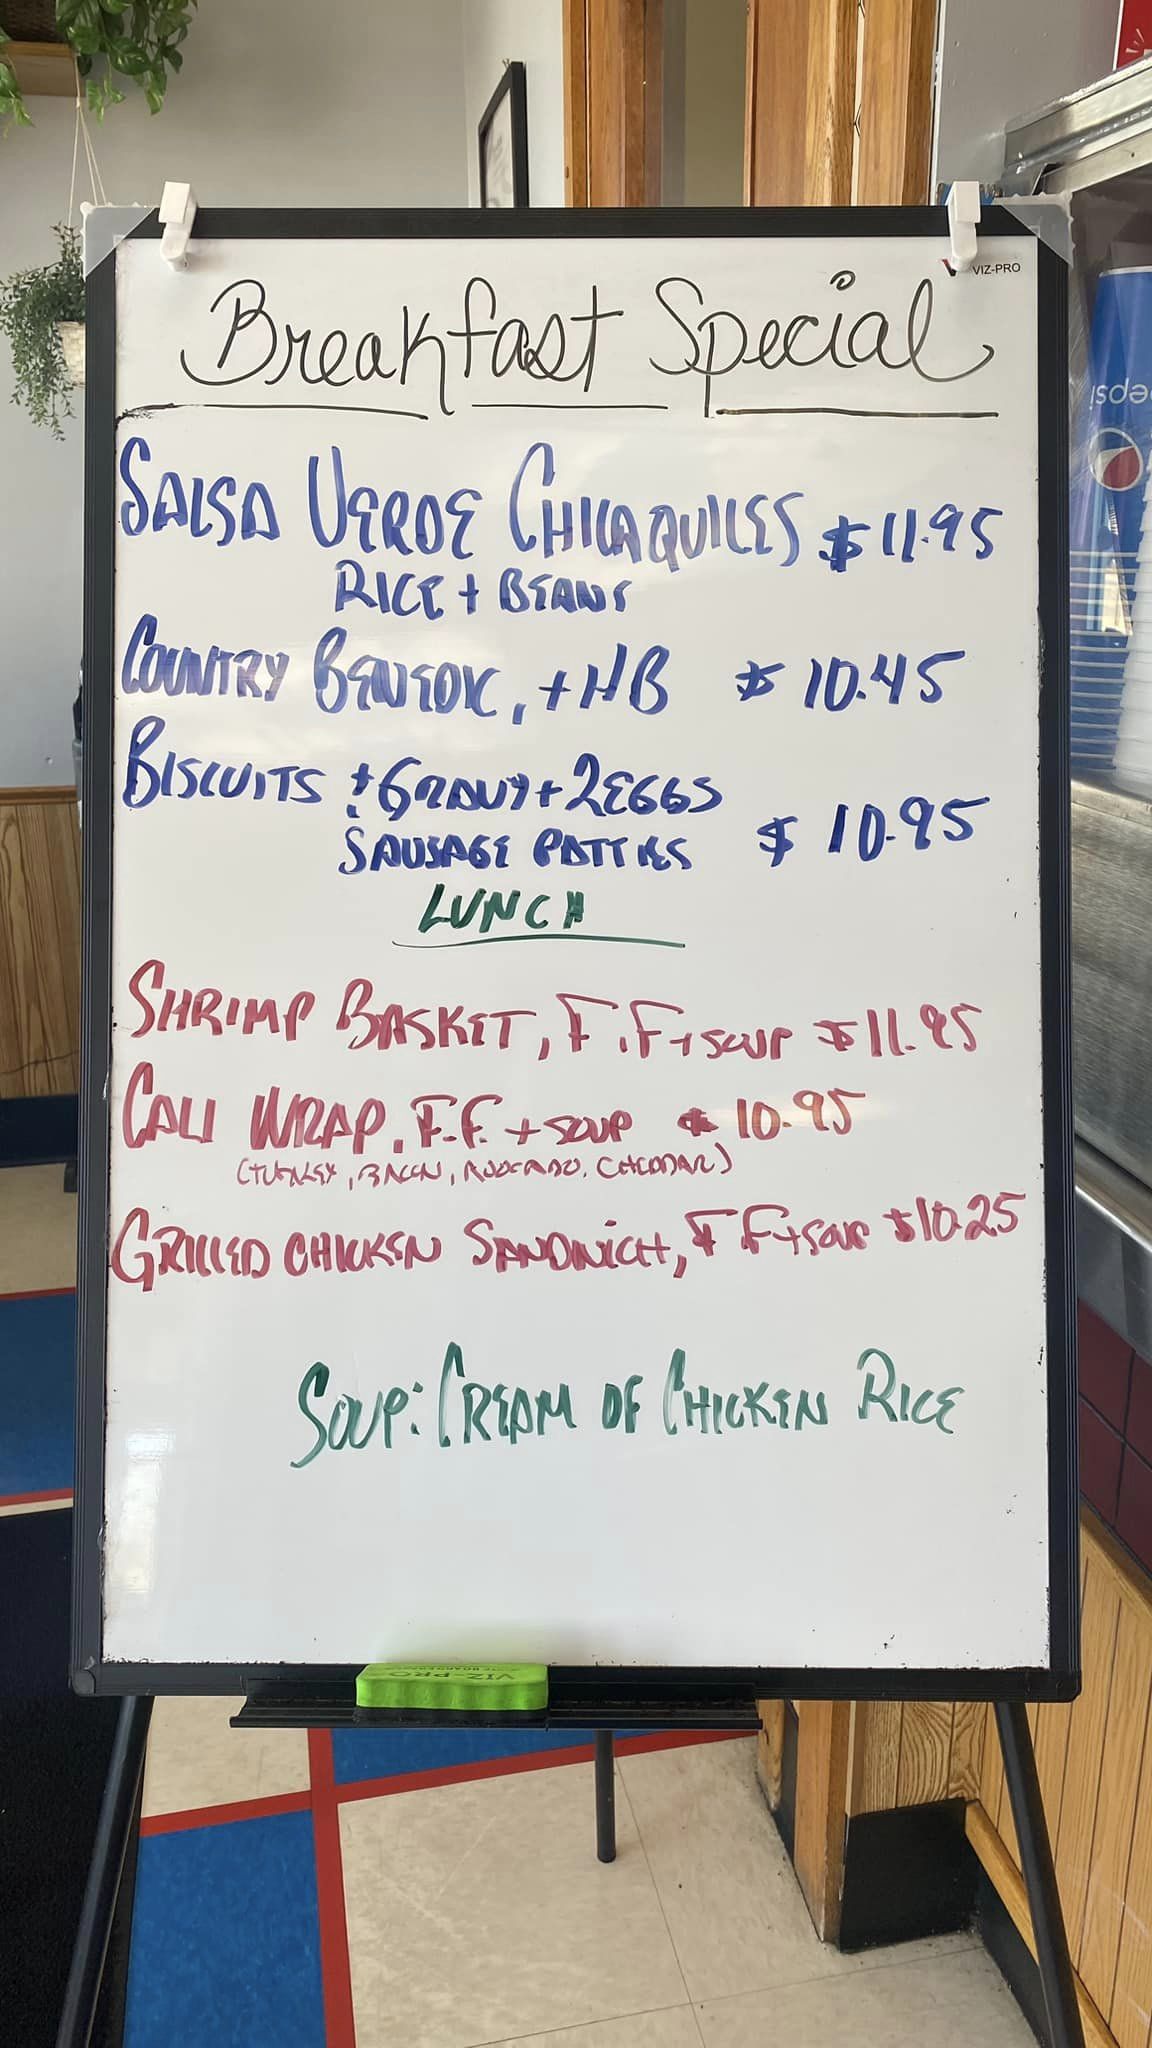 VIZ-PRO
Breakfast Special
SALSA VERDE CHILAQUILES $11.95
RICE + BEANS
COUNTRY BENEDIC, + HB $10.45
BISCUITS + GRAVY + 2 EGGS
SAUSAGE PATTIES $10.95
LUNCH
SHRIMP BASKET, F.F + SOUP $11.95
CALI WRAP, F.F. + SOUP $10.95
(TURKEY, BACON, AVOCADO, CHEDDAR)
GRILLED CHICKEN SANDWICH, F F + SOUP $10.25
SOUP: CREAM OF CHICKEN RICE
VIZ-PRO